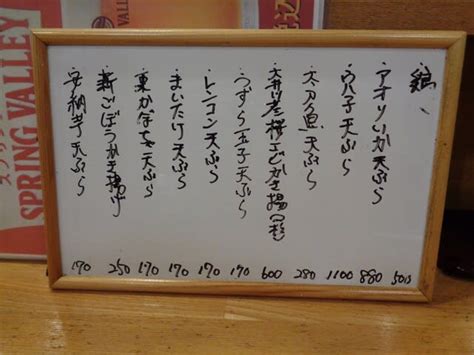 鶏、 500
アオリいか天ぷら 880
穴子天ぷら 1100
太刀魚天ぷら 280
桜エビかき揚 600
うずら玉子天ぷら 170
レンコン天ぷら 170
まいたけ天ぷら 170
かぼちゃ天ぷら 170
新ごぼうかき揚げ 250
安納芋天ぷら 190
SPRING VALLEY